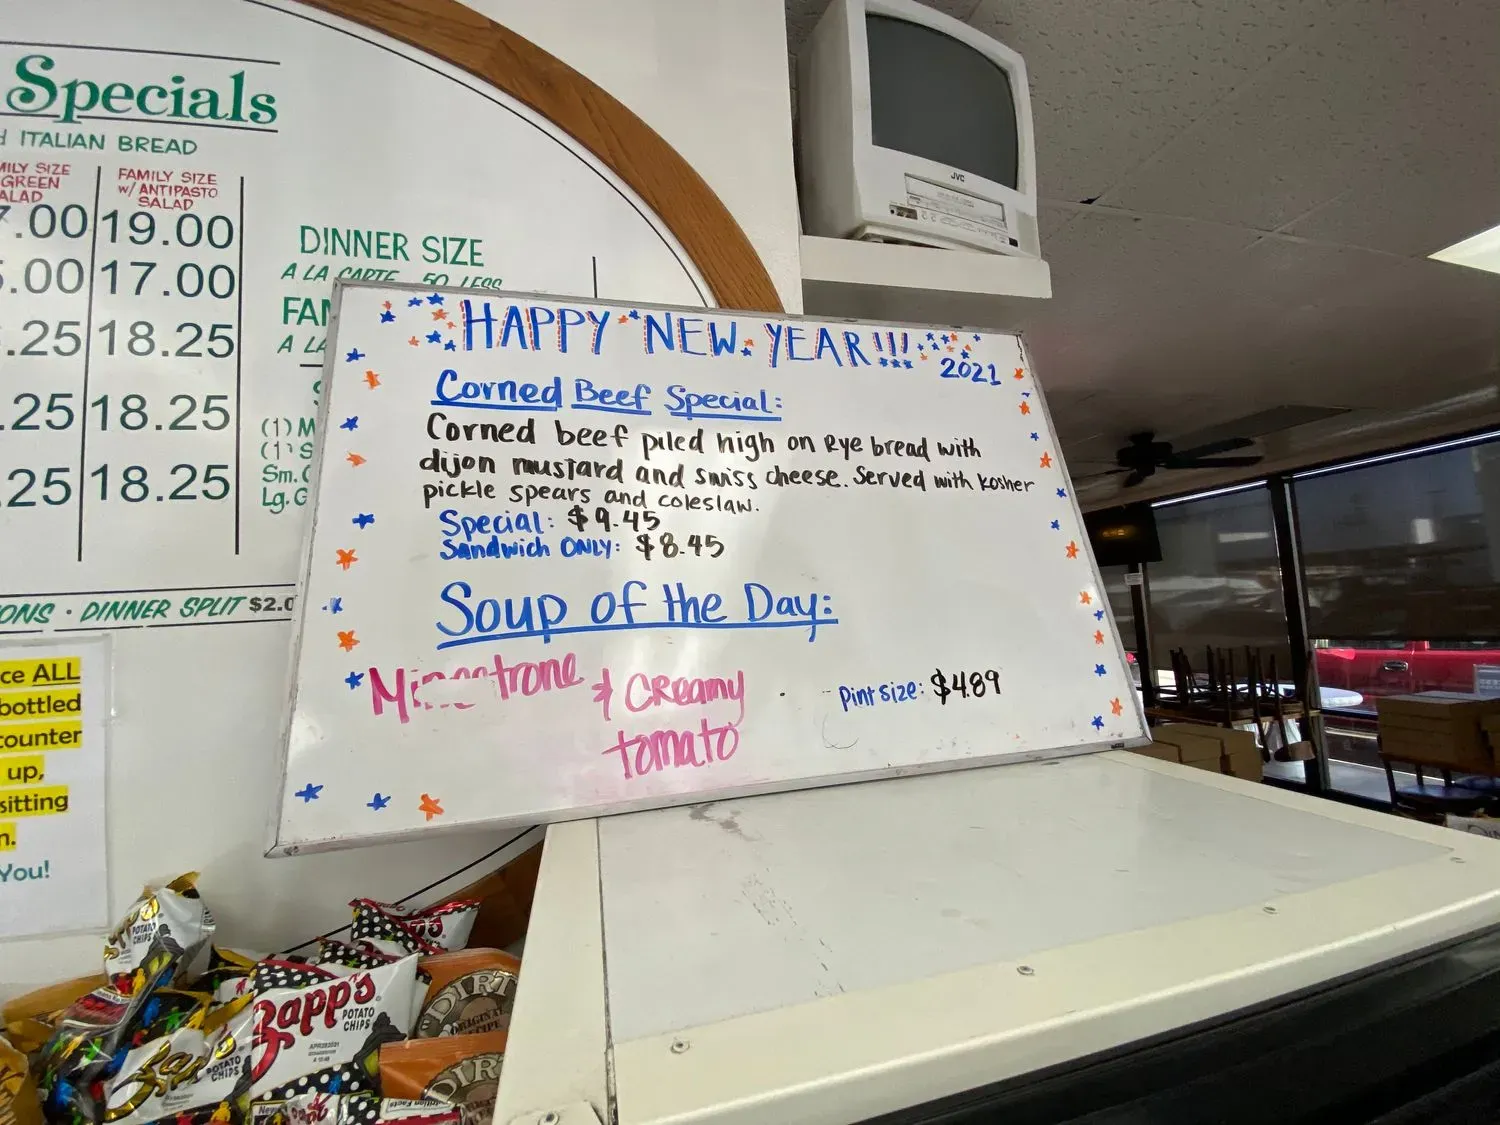 Specials
ITALIAN BREAD
SIZE
GREEN
FAMILY SIZE
w/ ANTIPASTO
SALAD
.00 19.00
.00 17.00
.25 18.25
.25 18.25
.25 18.25
DINNER SIZE
A LA CARTE .50 LESS
A LA
(1)
(1)
Sm.
Lg.
DINNER SPLIT $2.0
ALL
bottled
up,
sitting
You!
HAPPY NEW YEAR!!!
2021
Corned Beef Special:
Corned beef piled high on Rye bread with
dijon mustard and swiss cheese. Served with kosher
pickle spears and coleslaw.
Special: $9.45
Sandwich ONLY: $8.45
Soup of the Day:
Minestrone & Creamy
tomato
Pint size: $4.89
JVC
Zapp's
POTATO
CHIPS
POTATO
CHIPS
POTATO
CHIPS
DIRTY
ORIGINAL
RECIPE
DIRT